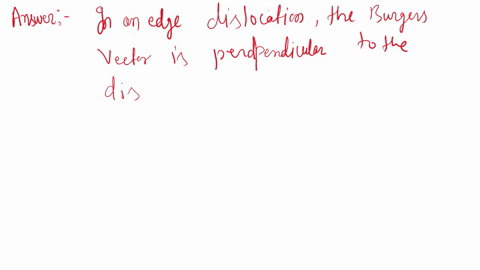 Answer:- In an edge dislocation, the Burgers
Vector is perpendicular to the
dis